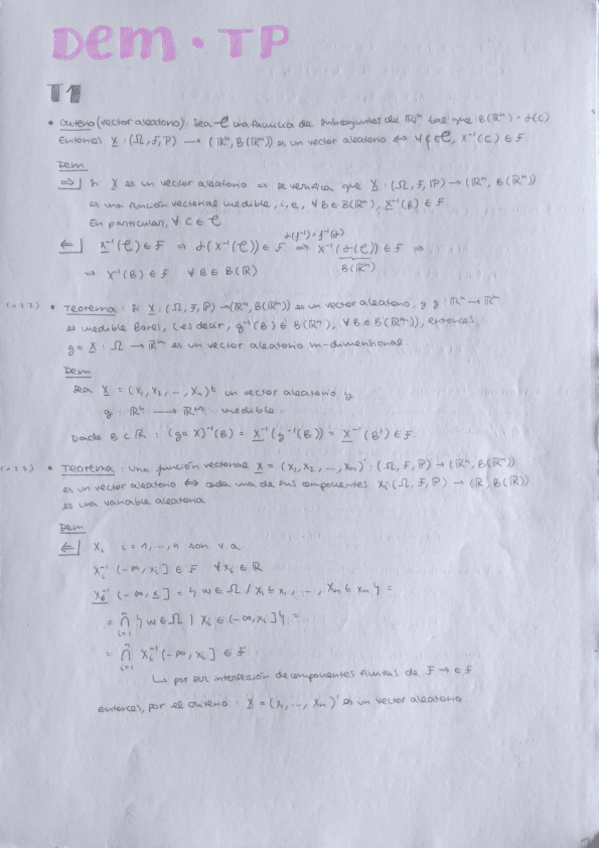 Dem · TP
T1
• Criterio (vector aleatorio): Sea 𝒞 una familia de subconjuntos de ℝⁿ tal que B(ℝⁿ) = σ(𝒞)
Entonces X : (Ω, F, P) → (ℝⁿ, B(ℝⁿ)) es un vector aleatorio ⇔ ∀ C ∈ 𝒞, X⁻¹(C) ∈ F
Dem
⇒| Si X es un vector aleatorio ⇒ se verifica que X : (Ω, F, P) → (ℝⁿ, B(ℝⁿ))
es una función vectorial medible, i.e, ∀ B ∈ B(ℝⁿ), X⁻¹(B) ∈ F.
En particular, ∀ C ∈ 𝒞
σ(f⁻¹) = f⁻¹(σ)
⇐| X⁻¹(𝒞) ∈ F ⇒ σ(X⁻¹(𝒞)) ∈ F ⇒ X⁻¹(σ(𝒞)) ∈ F ⇒
B(ℝⁿ)
⇒ X⁻¹(B) ∈ F ∀ B ∈ B(ℝ)
• Teorema : Si X : (Ω, F, P) → (ℝⁿ, B(ℝⁿ)) es un vector aleatorio, y g : ℝⁿ → ℝᵐ
es medible Borel, (es decir, g⁻¹(B) ∈ B(ℝⁿ), ∀ B ∈ B(ℝᵐ)), entonces,
g∘X : Ω → ℝᵐ es un vector aleatorio m-dimensional.
Dem
Sea X = (X₁, X₂, ..., Xₙ)ᵗ un vector aleatorio y
g : ℝⁿ → ℝᵐ medible.
Dado B ⊂ ℝ : (g∘X)⁻¹(B) = X⁻¹(g⁻¹(B)) = X⁻¹(B') ∈ F.
(1.1.3) • Teorema : Una función vectorial X = (X₁, X₂, ..., Xₙ)' : (Ω, F, P) → (ℝⁿ, B(ℝⁿ))
es un vector aleatorio ⇔ cada una de sus componentes Xᵢ : (Ω, F, P) → (ℝ, B(ℝ))
es una variable aleatoria.
Dem
⇐| Xᵢ i = 1, ..., n son v.a
Xᵢ⁻¹(-∞, xᵢ] ∈ F ∀ xᵢ ∈ ℝ
X⁻¹(-∞, x] = { w ∈ Ω / X₁ ≤ x₁, ..., Xₙ ≤ xₙ } =
= ⋂ᵢ₌₁ⁿ { w ∈ Ω | Xᵢ ∈ (-∞, xᵢ] } =
= ⋂ᵢ₌₁ⁿ Xᵢ⁻¹(-∞, xᵢ] ∈ F.
↳ por ser intersección de componentes finitas de F → ∈ F
Entonces, por el criterio : X = (X₁, ..., Xₙ)' es un vector aleatorio.